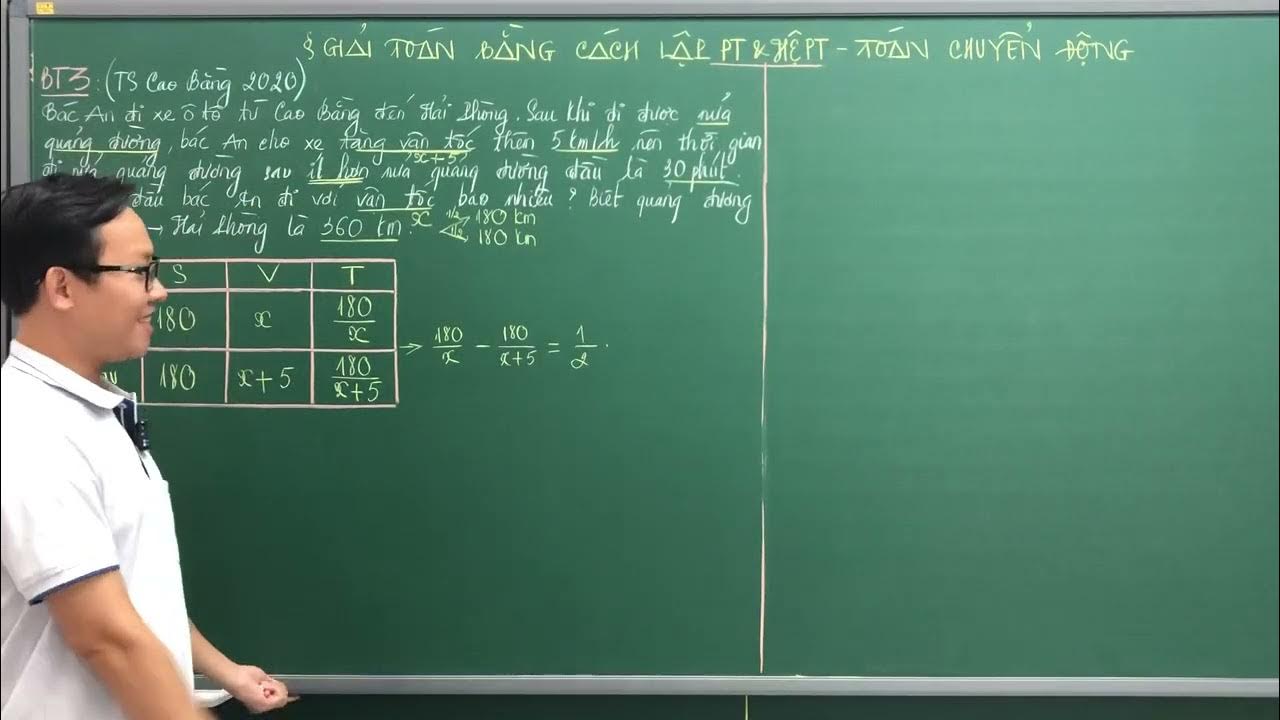 § GIẢI TOÁN BẰNG CÁCH LẬP PT & HỆ PT - TOÁN CHUYỂN ĐỘNG
BT3 : (TS Cao Bằng 2020)
Bác An đi xe ô tô từ Cao Bằng đến Hải Phòng. Sau khi đi được nửa
quảng đường, bác An cho xe tăng vận tốc thêm 5 km/h nên thời gian
x+5
đi nửa quảng đường sau ít hơn nửa quảng đường đầu là 30 phút.
đầu bác An đi với vận tốc bao nhiêu? Biết quảng đường
x 1/2 180 km
→ Hải Phòng là 360 km. 1/2 180 km
S V T
180 x 180/x
→ 180/x - 180/x+5 = 1/2 .
180 x+5 180/x+5